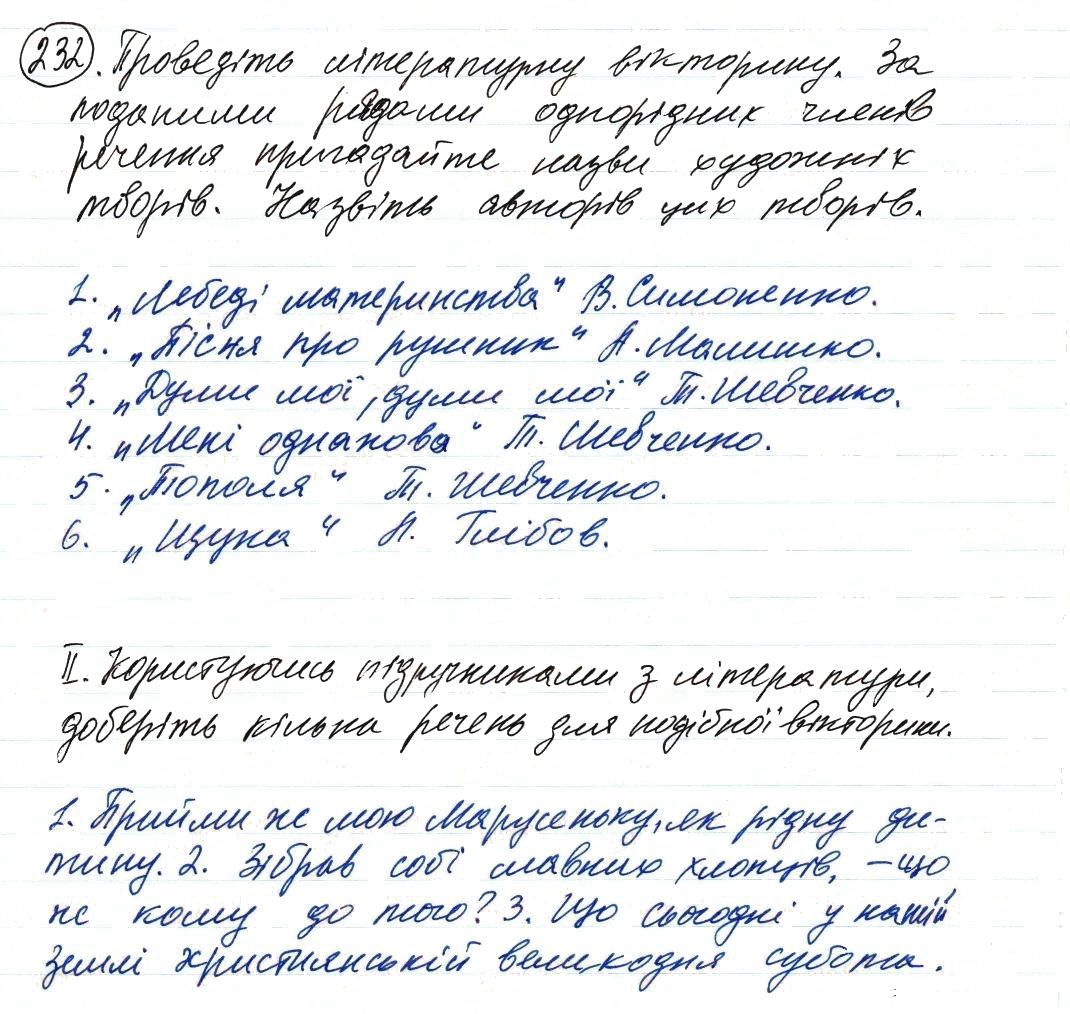 232. Проведіть літературну вікторину. За
поданими рядами однорідних членів
речення пригадайте назви художніх
творів. Назвіть авторів цих творів.
1. „Лебеді материнства" В. Симоненко.
2. „Пісня про рушник" А. Малишко.
3. „Думи мої, думи мої" Т. Шевченко.
4. „Мені однаково" Т. Шевченко.
5. „Тополя" Т. Шевченко.
6. „Щука" Л. Глібов.
II. Користуючись підручниками з літератури,
доберіть кілька речень для подібної вікторини.
1. Прийми ж мою Марусеньку, як рідну ди-
тину. 2. Зібрав собі славних хлопців, – що
ж кому до того? 3. Що сьогодні у нашій
землі християнській великодня субота.